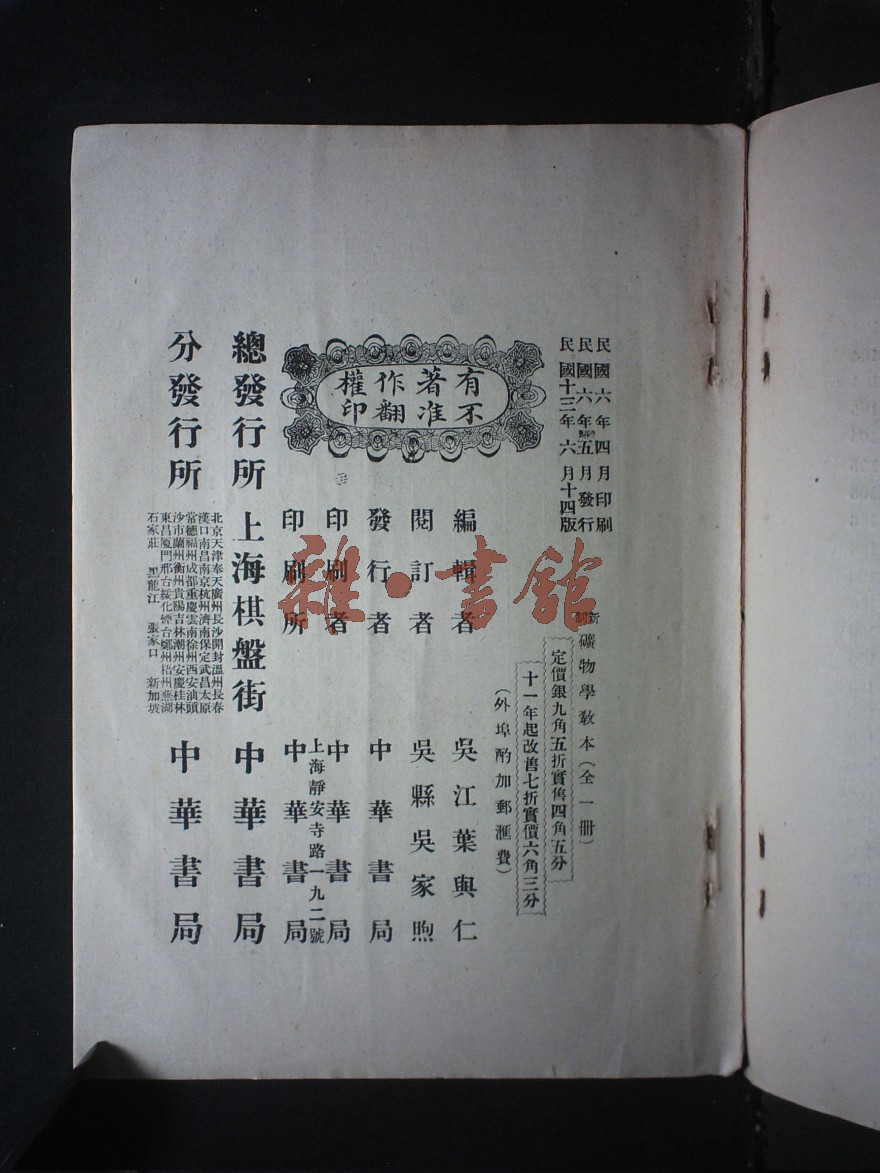 民國六年四月印刷
民國六年五月發行
民國十三年六月十四版
新制礦物學教本(全一冊)
定價銀九角五折實售四角五分
十一年起改售七折實價六角三分
(外埠酌加郵滙費)
有著作權
不准翻印
編輯者 吳江葉與仁
閱訂者 吳縣吳家煦
發行者 中華書局
印刷者 中華書局
上海靜安寺路一九二號
印刷所 中華書局
總發行所 上海棋盤街 中華書局
分發行所 中華書局
北京天津奉天廣州長沙開封溫州長春
漢口南昌南京杭州濟南保定武昌太原
常德福州成都重慶雲南徐州西安汕頭
沙市蘭州衡州貴陽吉林潮州安慶桂林
東昌厦門邢台綏化煙台鄭州梧州蕪湖
石家莊 黑龍江 張家口 新加坡
雜·書館